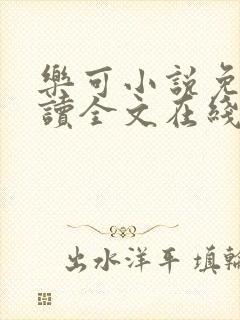 樂可小說免
讀全文在綫
出水洋平 填輪